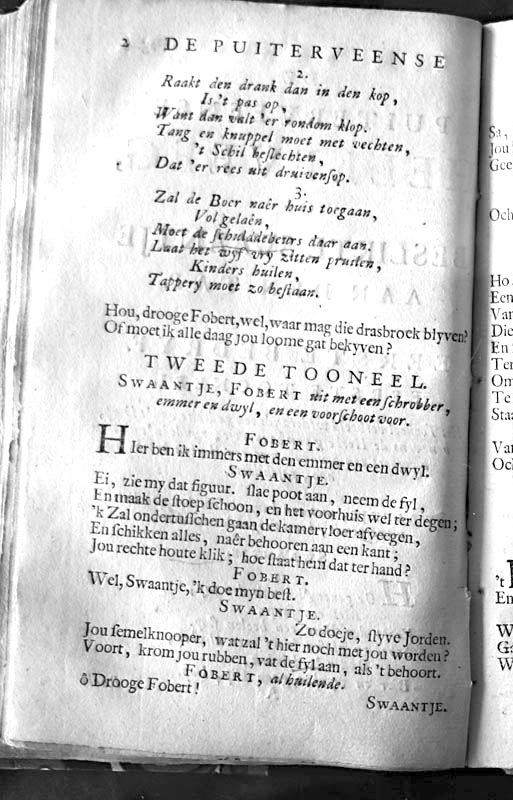 2 DE PUITERVEENSE
2.
Raakt den drank dan in den kop,
Is 't pas op,
Want dan valt 'er rondom klop.
Tang en knuppel moet met vechten,
't Schil beslechten,
Dat 'er rees uit druivensop.
3.
Zal de Boer naêr huis toegaan,
Vol gelaên,
Moet de schulddebeurs daar aan.
Laat het wyf vry zitten pruilen,
Kinders huilen,
Tappery moet zo bestaan.
Hou, drooge Fobert, wel, waar mag die drasbroek blyven?
Of moet ik alle daag jou loome gat bekyven?
TWEEDE TOONEEL.
SWAANTJE, FOBERT uit met een schrobber,
emmer en dwyl, en een voorschoot voor.
FOBERT.
HIer ben ik immers met den emmer en een dwyl.
SWAANTJE.
Ei, zie my dat figuur. slae poot aan, neem de fyl,
En maak de stoep schoon, en het voorhuis wel ter degen;
'k Zal ondertusschen gaan de kamervloer afveegen,
En schikken alles, naêr behooren aan een kant;
Jou rechte houte klik; hoe staat hem dat ter hand?
FOBERT.
Wel, Swaantje, 'k doe myn best.
SWAANTJE.
Zo doeje, styve Jorden.
Jou semelknooper, wat zal 't hier noch met jou worden?
Voort, krom jou rubben, vat de fyl aan, als 't behoort.
FOBERT, al huilende.
ô Drooge Fobert!
SWAANTJE.
Sa,
Jou
Gee
Och
Ho
Een
Van
Die
En
Ter
Om
Te
Staa
Van
Och
't
En
W
Ga
W